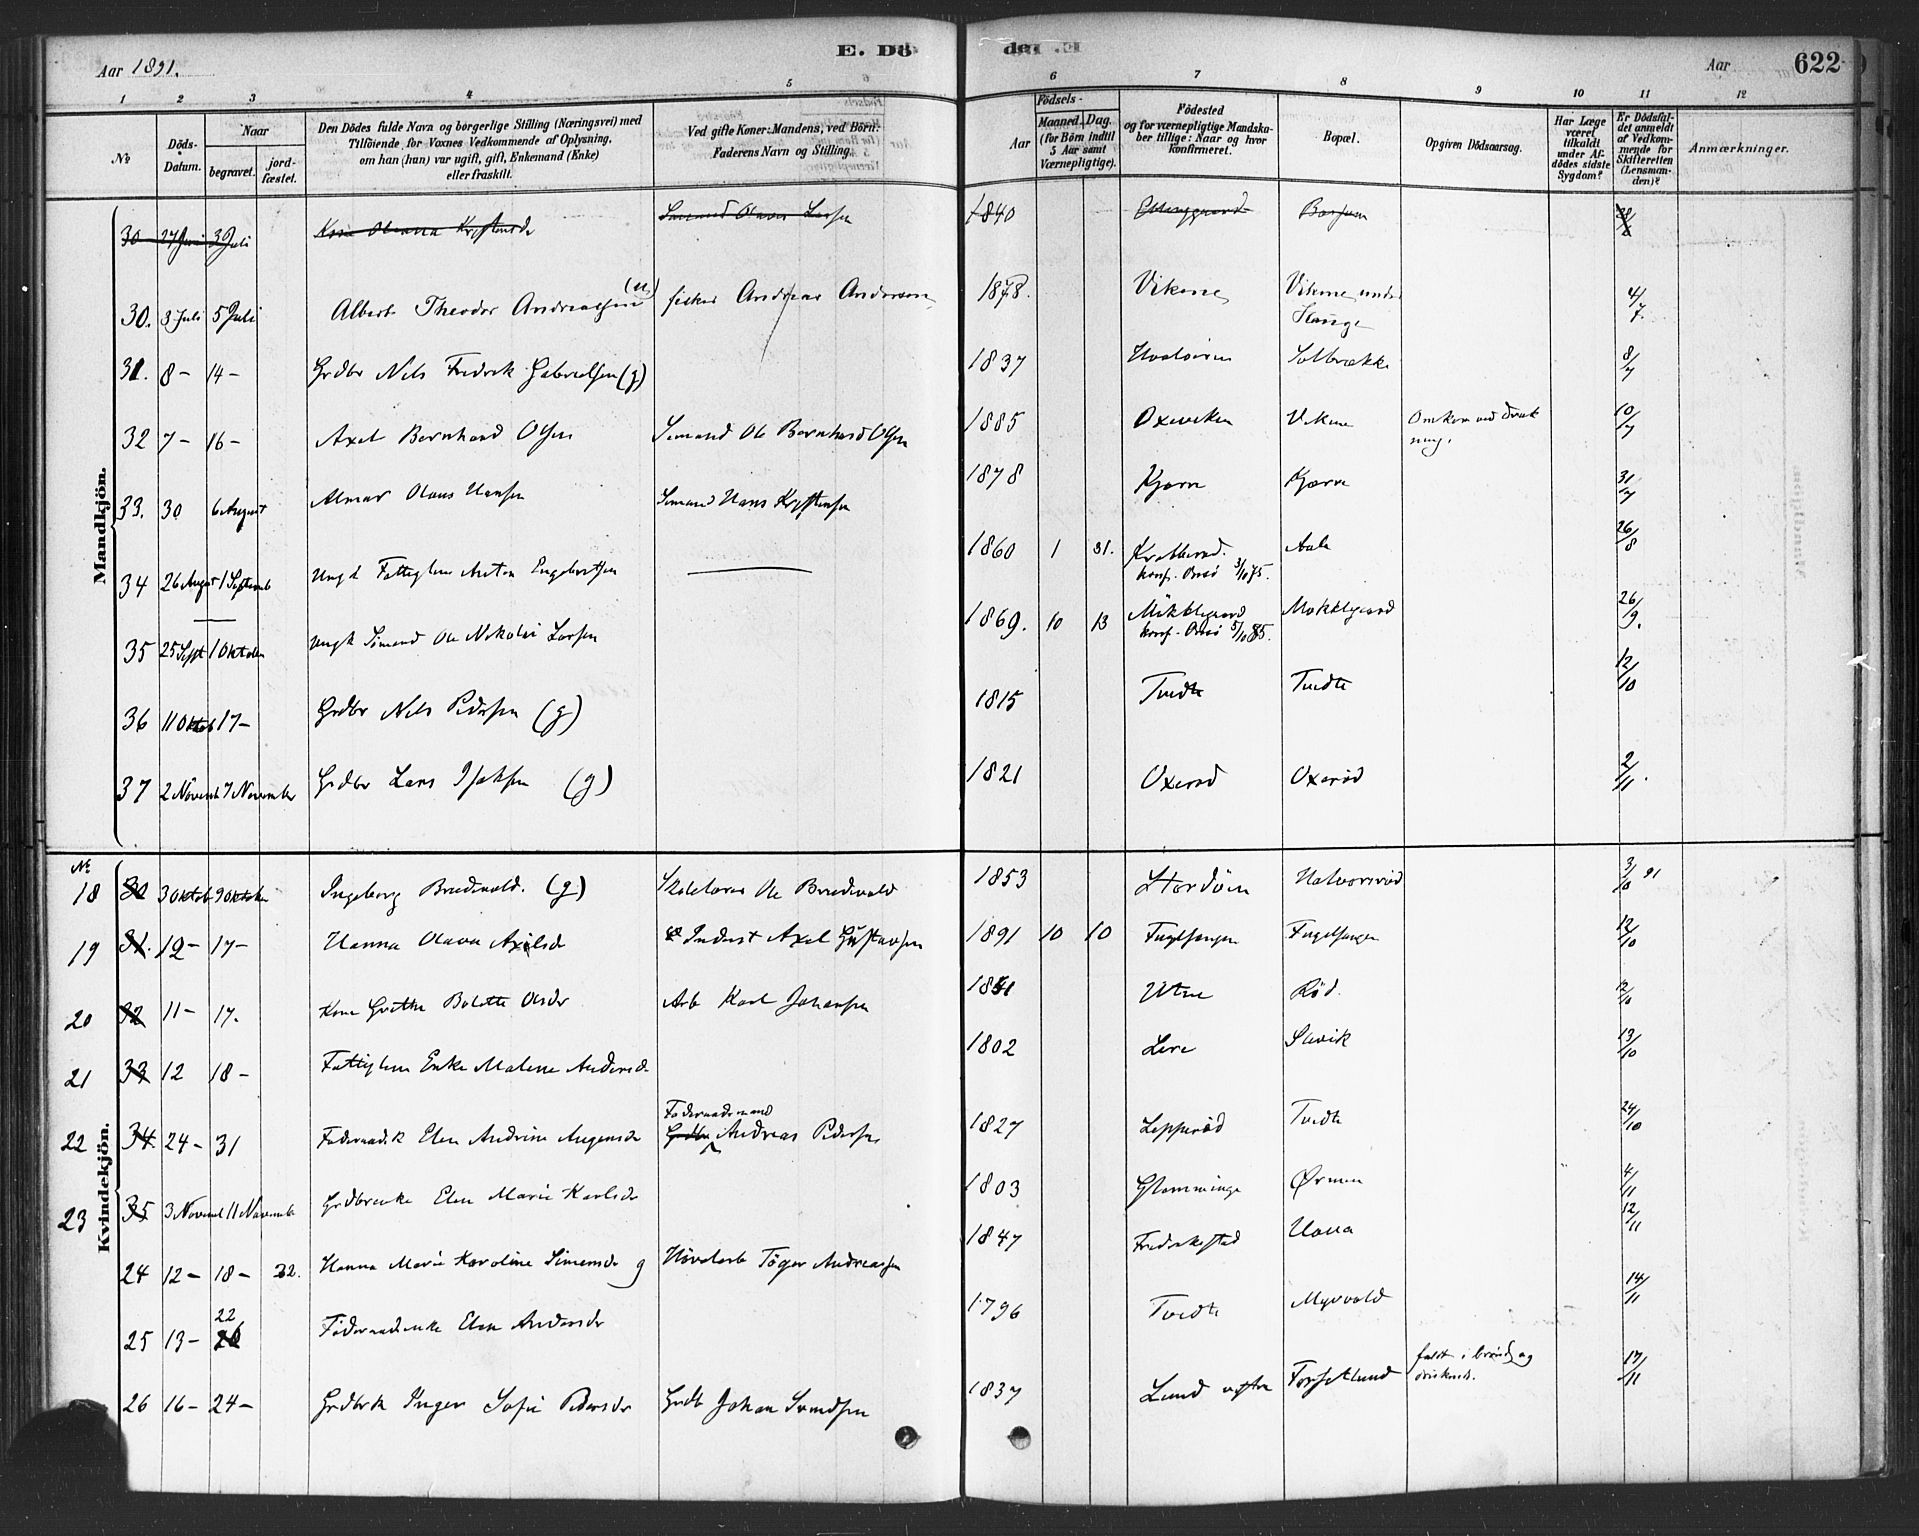 Aar 1891.
E. Dö
den E
Aar
622
1 2 3 4 5 6 7 8 9 10 11 12
№
Döds-Datum.
Naar
begravet.
jord-fæstet.
Den Dödes fulde Navn og borgerlige Stilling (Næringsvei) med
Tilföiende, for Voxnes Vedkommende af Oplysning,
om han (hun) var ugift, gift, Enkemand (Enke)
eller fraskilt.
Ved gifte Koner: Mandens, ved Börn:
Faderens Navn og Stilling.
Aar
Födsels-
Maaned. Dag.
(for Börn indtil
5 Aar samt
Værnepligtige).
Födested
og for værnepligtige Mandska-
ber tillige: Naar og hvor
konfirmeret.
Bopæl.
Opgiven Dödsaarsag.
Har Læge
været
tilkaldt
under Af-
dödes sidste
Sygdom?
Er Dödsfal-
det anmeldt
af Vedkom-
mende for
Skifteretten
(Lensman-
den)?
Anmærkninger.
Mandkjön.
30 27 Juni 3 Juli Kone Oleanna Sömand Larsen 1840
30. 3 Juli 5 Juli Albert Theodor Andreassen (u) fisker Andreas Andersen 1878. Vikene Vikene under 4/7.
Hauge
31. 8- 14- Grdbr Nils Fredrik Gabrielsen (g) 1837 Solbrække 8/7
32 7- 16- Axel Bernhard Olsen Sömand Ole Bernhard Olsen 1885 Oxeviken Vikene Omkom ved drukning. 10/7
33. 30 6 August Almar Olaus Hansen Sömand Hans 1878 Kjærre Kjærre 31/7
34 26 August 1 Septemb Ungk Fattiglem Anton Engebretsen 1860 1 31. Krabberød. Aale 26/8
konf. Onsö 3/10 75.
35 25 Sept 1 Oktober Ungk Sömand Ole Nikolai Larsen 1869. 10 13 Mökklegaard Mökklegaard 26/9.
konf. Onsö 5/10 85.
36 11 Oktob 17- Grdbr Nils Pedersen (g) 1815 Tvedte Tvedte 12/10
37 2 Novemb 7 November Grdbr Lars Isaksen (g) 1821 Oxerød Oxerød 2/11.
Kvindekjön.
№
18 30 3 Oktob 9 Oktober Ingeborg Bredvold. (g) Skolelærer Ole Bredvold 1853 Halvorsrød 3/10 91
19 31. 12- 17- Hanna Olava Axelsdr Inderst Axel Gustavsen 1891 10 10 Fuglesangen Fuglesangen 12/10
20 32 11- 17. Kone Grethe Bolette Olsdr Arb Karl Johansen Utne Rød. 12/10
21 33 12 18- Fattiglem Enke Malene Andersdr 1802 Lere Slevik 13/10
22 34. 24- 31 Föderaadsk Elen Andrine Mogensdr Föderaadsmand 1827 Lepperød Tvedte 24/10
Grdbr Andreas Pedersen
23 35 3 Novemb 11 Novembr Grdbrenke Elen Marie Karlsdr 1803 Glomminge Ørmen 4/11
24 12- 18- 22. Hanna Marie Karoline Simensdr g Hövelarb Töger Andreassen 1847 Fredrikstad 12/11
25 13- 22 Föderaadsenke Elen Andersdr 1796 Tvedte Myrvold 14/11
26 16- 24- Grdbrk Inger Sofie Pedersdr Grdb Johan Svendsen 1837 Lund Torsetlund faldt i brönd og druknede. 17/11